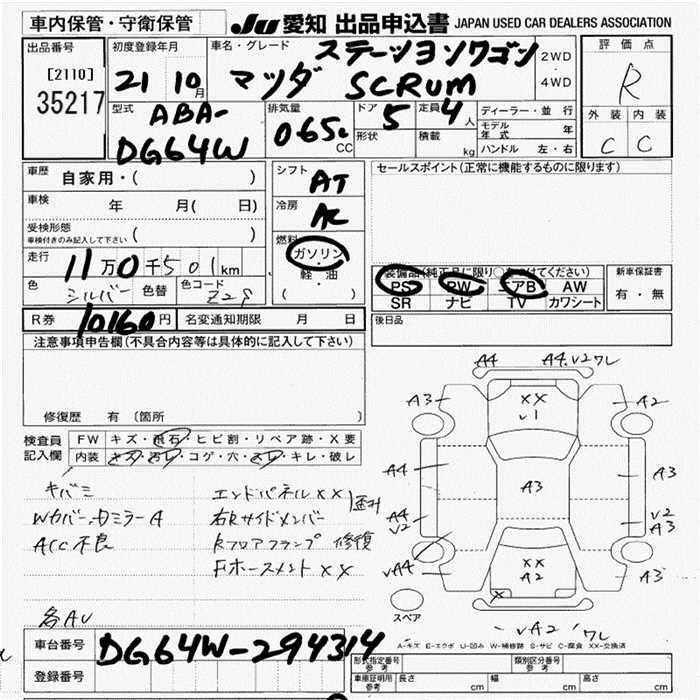 車内保管・守衛保管
JU 愛知 出品申込書 JAPAN USED CAR DEALERS ASSOCIATION
出品番号
[2110]
35217
初度登録年月
21 10月
車名・グレード
ステーションワゴン
マツダ SCRUM
2WD
・
4WD
評価点
R
外装 内装
C C
型式
ABA-
DG64W
排気量
065 CC
ドア 5
形状
定員 4人
積載 kg
ディーラー・並行
モデル年式 年
ハンドル 左・右
車歴 自家用・( )
車検 年 月( 日)
受検形態
車検付きのみ記入して下さい ( )
走行 11万0千501km
色 シルバー 色替 色コード Z2S
シフト AT
冷房 AC
燃料
ガソリン
・
軽・油
( )
セールスポイント(正常に機能するものに限ります)
装備品(純正品に限り○をつけてください)
PS PW エアB AW
SR ナビ TV カワシート
新車保証書
有・無
R券 10160円 名変通知期限 月 日
後日品
注意事項申告欄(不具合内容等は具体的に記入して下さい)
修復歴 有 〔箇所 〕
検査員記入欄
FW キズ・飛石・ヒビ割・リペア跡・X要
内装 キズ・汚レ・コゲ・穴・スレ・キレ・破レ
キバミ
Wカバー、カミラーA
ACC不良
各AU
エンドパネルXX
右Rサイドメンバー
Rフロアフランプ 修復
Fホースメント XX
A4 A4.V2ワレ
A3 XX A2
V1
A4 A3 A3
A4 V2
V2 A3
VA4 XX A3
A2
X
スペア
VA2 ワレ
A-キズ E-エクボ U-凹み W-補修跡 S-サビ C-腐食 XX-交換済
車台番号 DG64W-294314
登録番号
型式指定番号
参考
類別区分番号
参考
車庫証明用
参考
長さ cm 幅 cm 高さ cm